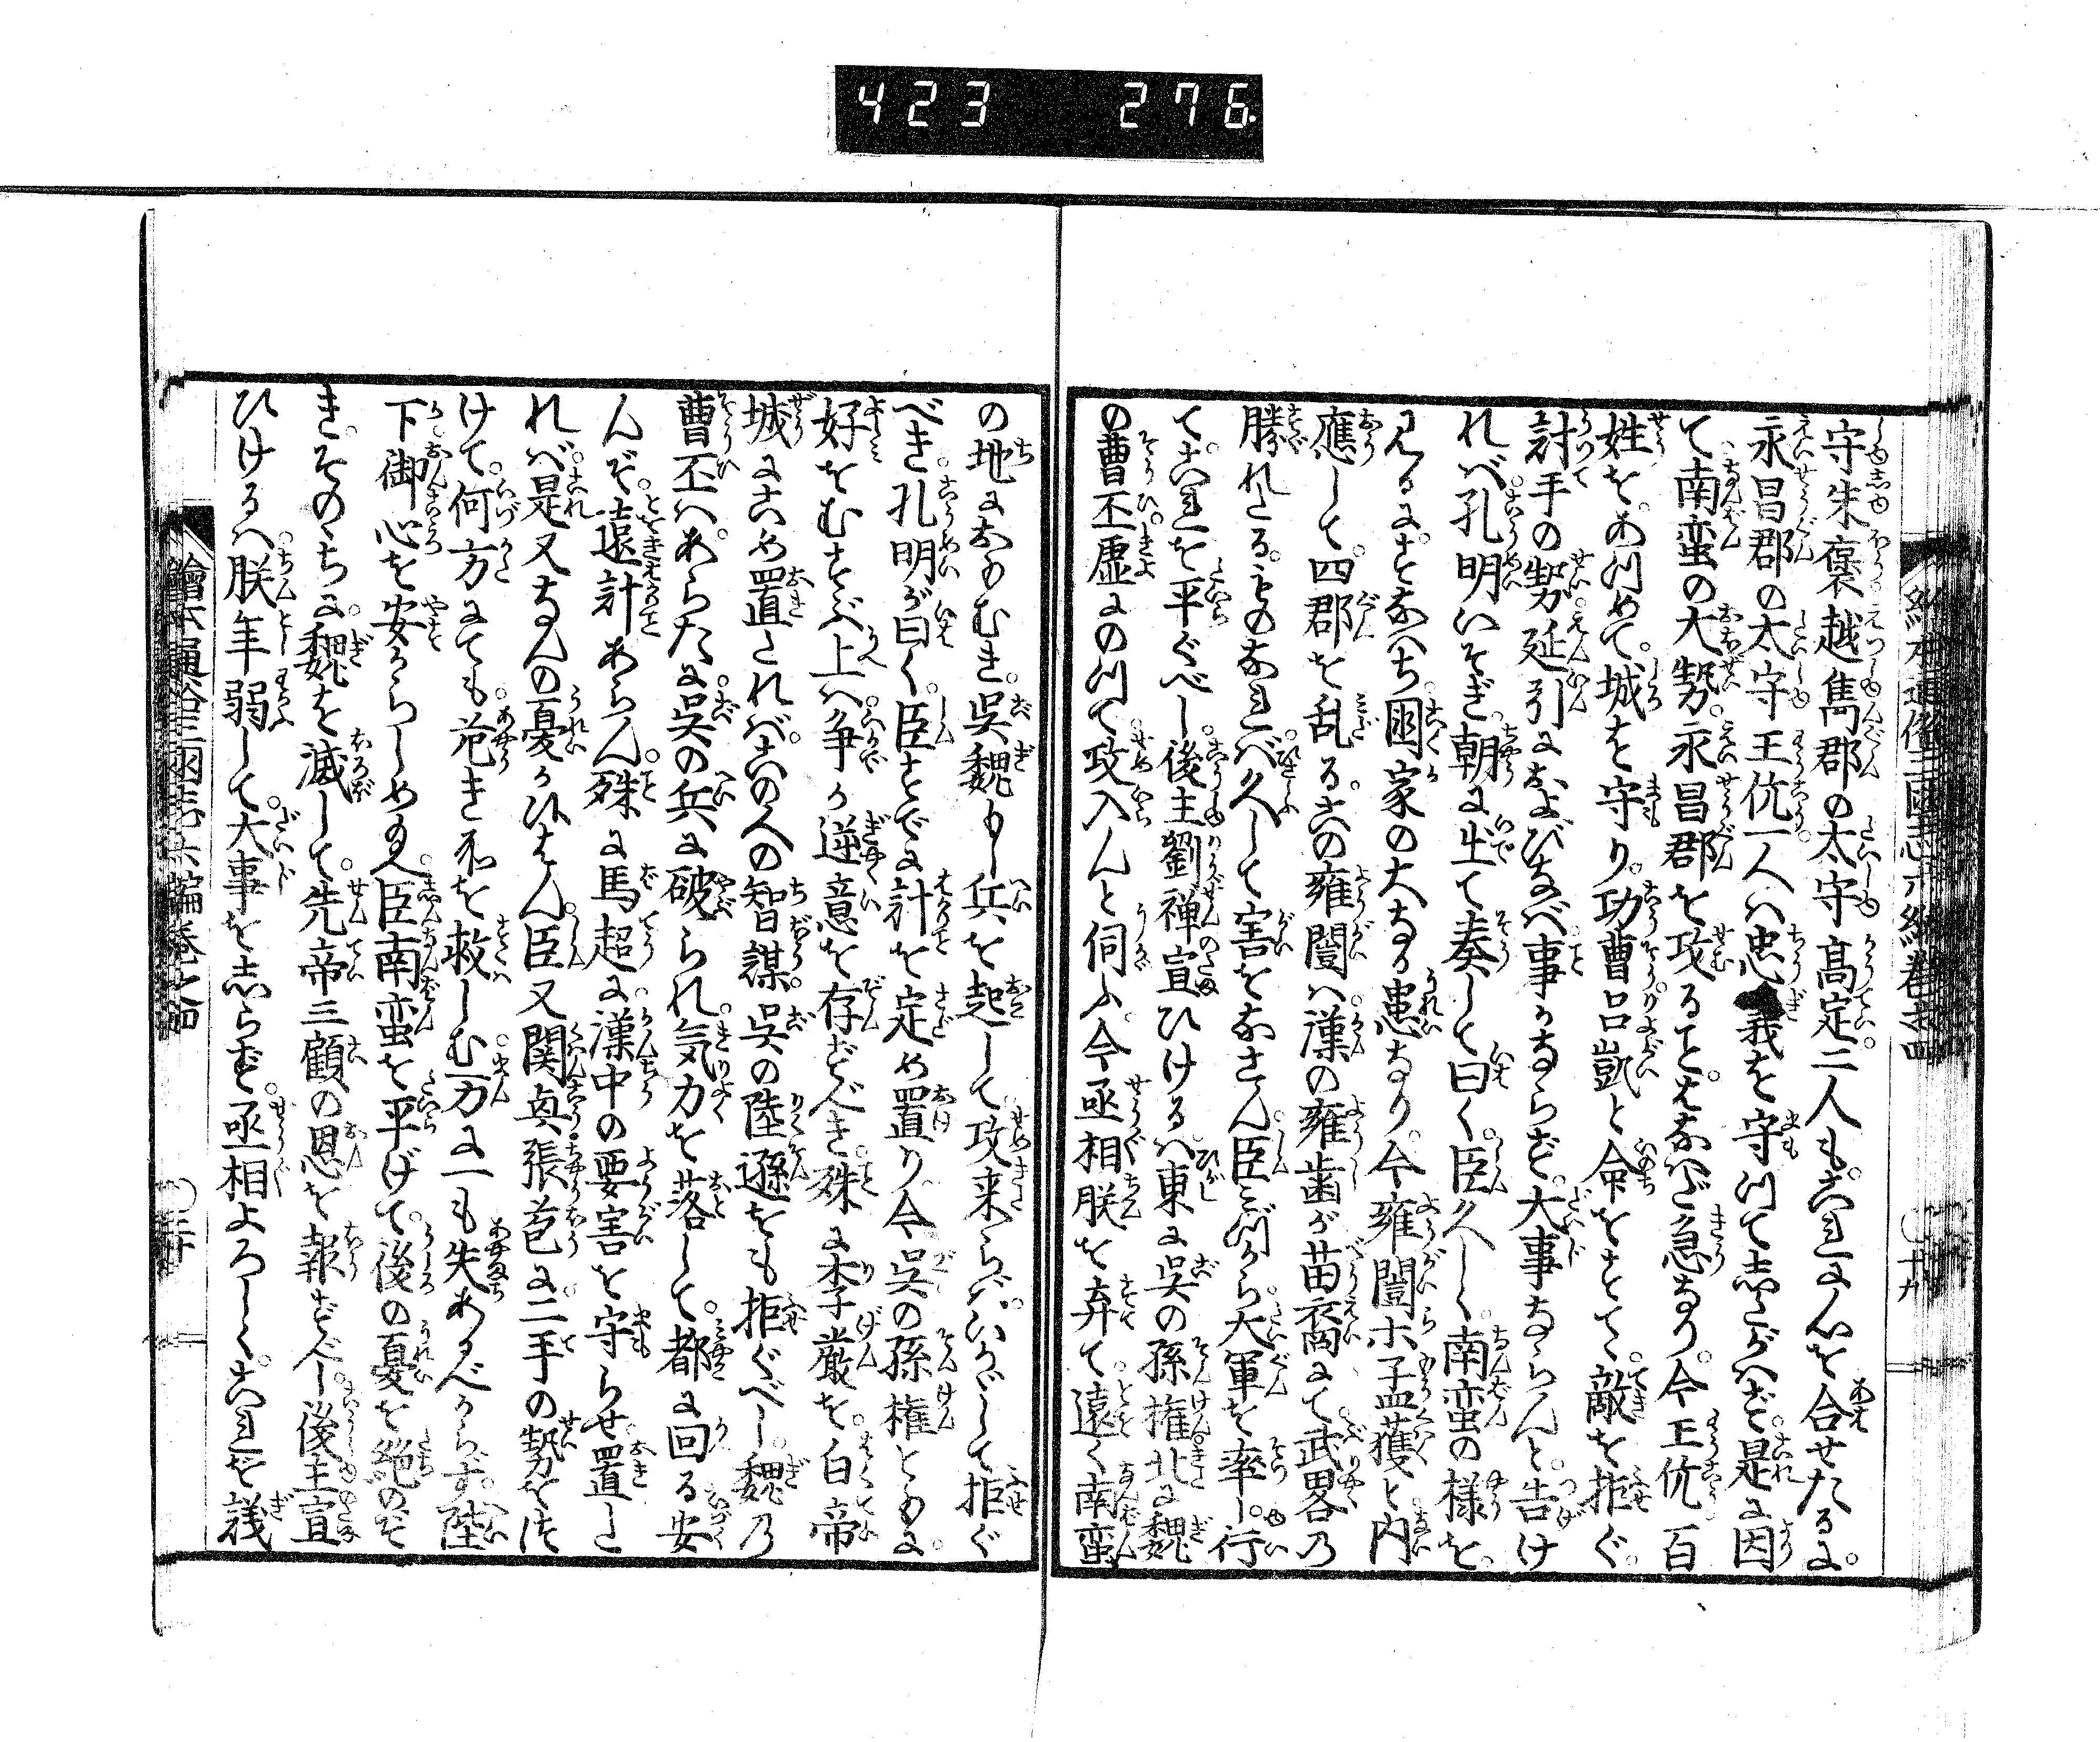 423 276
守朱褒越雋郡の太守高定二人もこれに心を合せたるに。
永昌郡の太守王伉一人ハ忠義を守つて志たがハず。是に因
て南蛮の大勢。永昌郡を攻ること。はなハだ急なり。今王伉百
姓を。あつめて。城を守り。功曹呂凱と命をすてゝ。敵を拒ぐ。
討手の勢延引におよびなバ事かならず。大事ならんと。告け
れバ孔明いそぎ朝に出て奏して曰く。臣久しく。南蛮の様を。
見るに。すなハち國家の大なる患なり。今雍闓ホ孟獲と内
應して。四郡を乱る。この雍闓ハ漢の雍歯が苗裔にて武畧の
勝れたる。ものなれバ久して害をなさん。臣ミづから大軍を率し行
て。これを平ぐべし。後主劉禅宣ひけるハ東に呉の孫権北に魏
の曹丕虚にのつて攻入んと伺ふ。今丞相朕を弃て遠く南蛮
の地におもむき。呉魏もし兵を起して攻来らバ。いかゞして拒ぐ
べき。孔明が曰く。臣すでに計を定め置り。今呉の孫権ともに。
好をむすぶ上ハ争か逆意を存ずべき。殊に李厳を。白帝
城にこめ置たれバ。この人の智謀。呉の陸遜をも拒ぐべし。魏乃
曹丕ハ。あらたに呉の兵に破られ気力を落して。都に回る安
んぞ。遠計あらん。殊に馬超に漢中の要害を守らせ置し
れバ。是又なんの憂かハはん。臣又関興張苞に二手の勢をは
けて。何方にても。危き所を救しむ。万に一も失あるべからず。陛
下御心を安からしめ玉へ。臣南蛮を平げて。後の憂を絶のぞ
き。そのゝちに魏を滅して。先帝三顧の恩を報ずべし。後主宣
ひけるハ。朕年弱して。大事を志らず。丞相よろしく。これを議